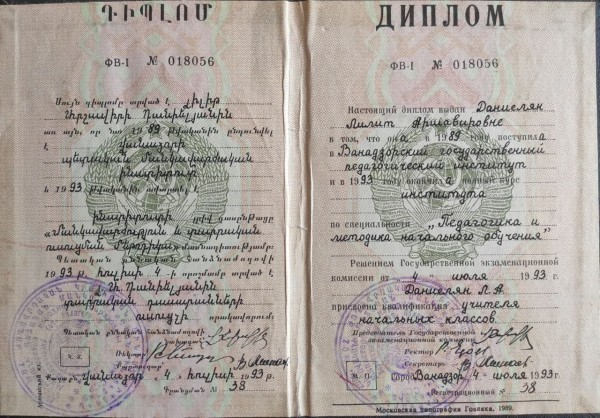 ԴԻՊԼՈՄ
ФВ-I № 018056
Սույն դիպլոմը տրված է Լիլիթ
Արշավիրի Դանիելյանին
առ այն, որ նա 1989 թվականին ընդունվել է
Վանաձորի
պետական մանկավարժական
ինստիտուտ
և 1993 թվականին ավարտել է
ինստիտուտի լրիվ դասընթացը
«Մանկավարժություն և տարրական
ուսուցման մեթոդիկա» մասնագիտությամբ:
Պետական քննական հանձնաժողովի
1993 թ. հուլիսի 4-ի որոշմամբ
Լ. Դանիելյանին
տարրական դասարանների
ուսուցչի որակավորում:
Պետական քննական հանձնաժողովի
նախագահ
Ռեկտոր
Քարտուղար
Կ. Տ.
Քաղաք Վանաձոր 4 հուլիսի 1993 թ.
Գրանցման № 38
ДИПЛОМ
ФВ-I № 018056
Настоящий диплом выдан Даниелян
Лилит Аршавировне
в том, что она в 1989 году поступила
в Ванадзорский государственный
педагогический институт
и в 1993 году окончила полный курс
института
по специальности „Педагогика и
методика начального обучения"
Решением Государственной экзаменационной
комиссии от 4 июля 1993 г.
Даниелян Л. А.
присвоена квалификация учителя
начальных классов.
Председатель Государственной
экзаменационной комиссии
Ректор
Секретарь
М. П. Город Ванадзор, 4 июля 1993 г.
Регистрационный № 38
Московская типография Гознака. 1989.